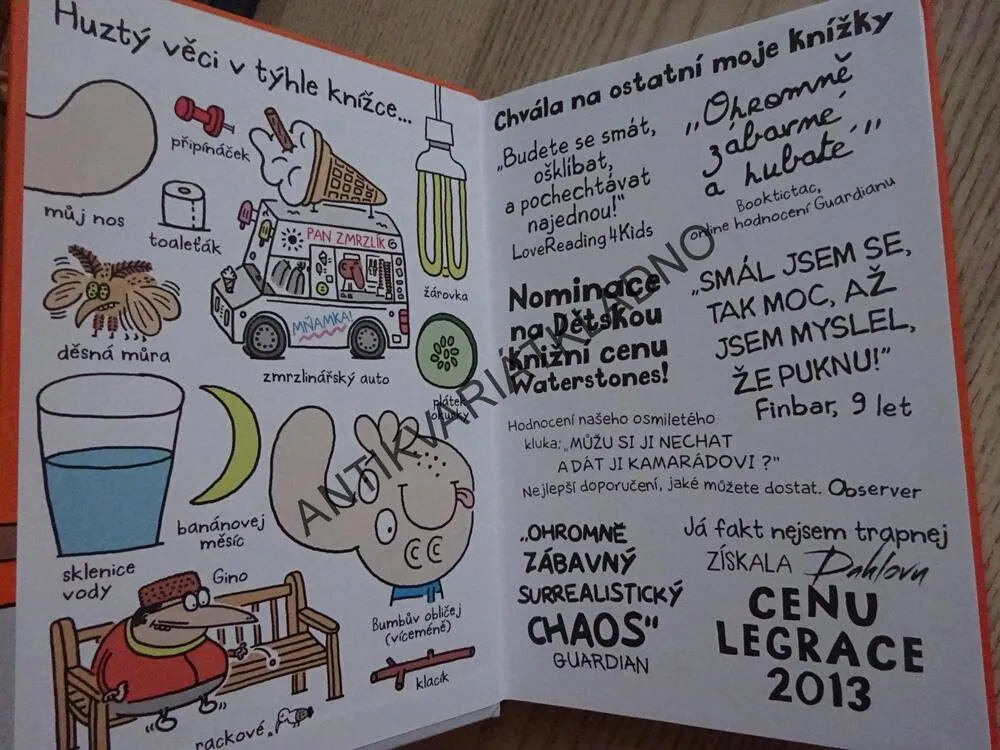 Huztý věci v týhle knížce...
můj nos
připínáček
toaleťák
PAN ZMRZLÍK
MŇAMKA!
žárovka
děsná můra
zmrzlinářský auto
plátek
okurky
sklenice
vody
banánovej
měsíc
Gino
Bumbův obličej
(víceméně)
klacík
rackové
Chvála na ostatní moje knížky
„Budete se smát,
ošklíbat,
a pochechtávat
najednou!"
LoveReading4Kids
„Ohromně
zábavné
a hubaté"
Booktictac,
online hodnocení Guardianu
Nominace
na Dětskou
knižní cenu
Waterstones!
„SMÁL JSEM SE,
TAK MOC, AŽ
JSEM MYSLEL,
ŽE PUKNU!"
Finbar, 9 let
Hodnocení našeho osmiletého
kluka: „MŮŽU SI JI NECHAT
A DÁT JI KAMARÁDOVI ?"
Nejlepší doporučení, jaké můžete dostat. Observer
„OHROMNĚ
ZÁBAVNÝ
SURREALISTICKÝ
CHAOS"
GUARDIAN
Já fakt nejsem trapnej
ZÍSKALA Dahlovu
CENU
LEGRACE
2013
ANTIKVARIÁT KLADNO